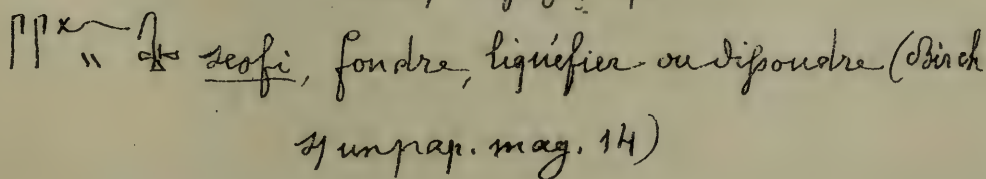 sesfi, fondre, liquéfier ou dissoudre (Birch
s/ un pap. mag. 14)